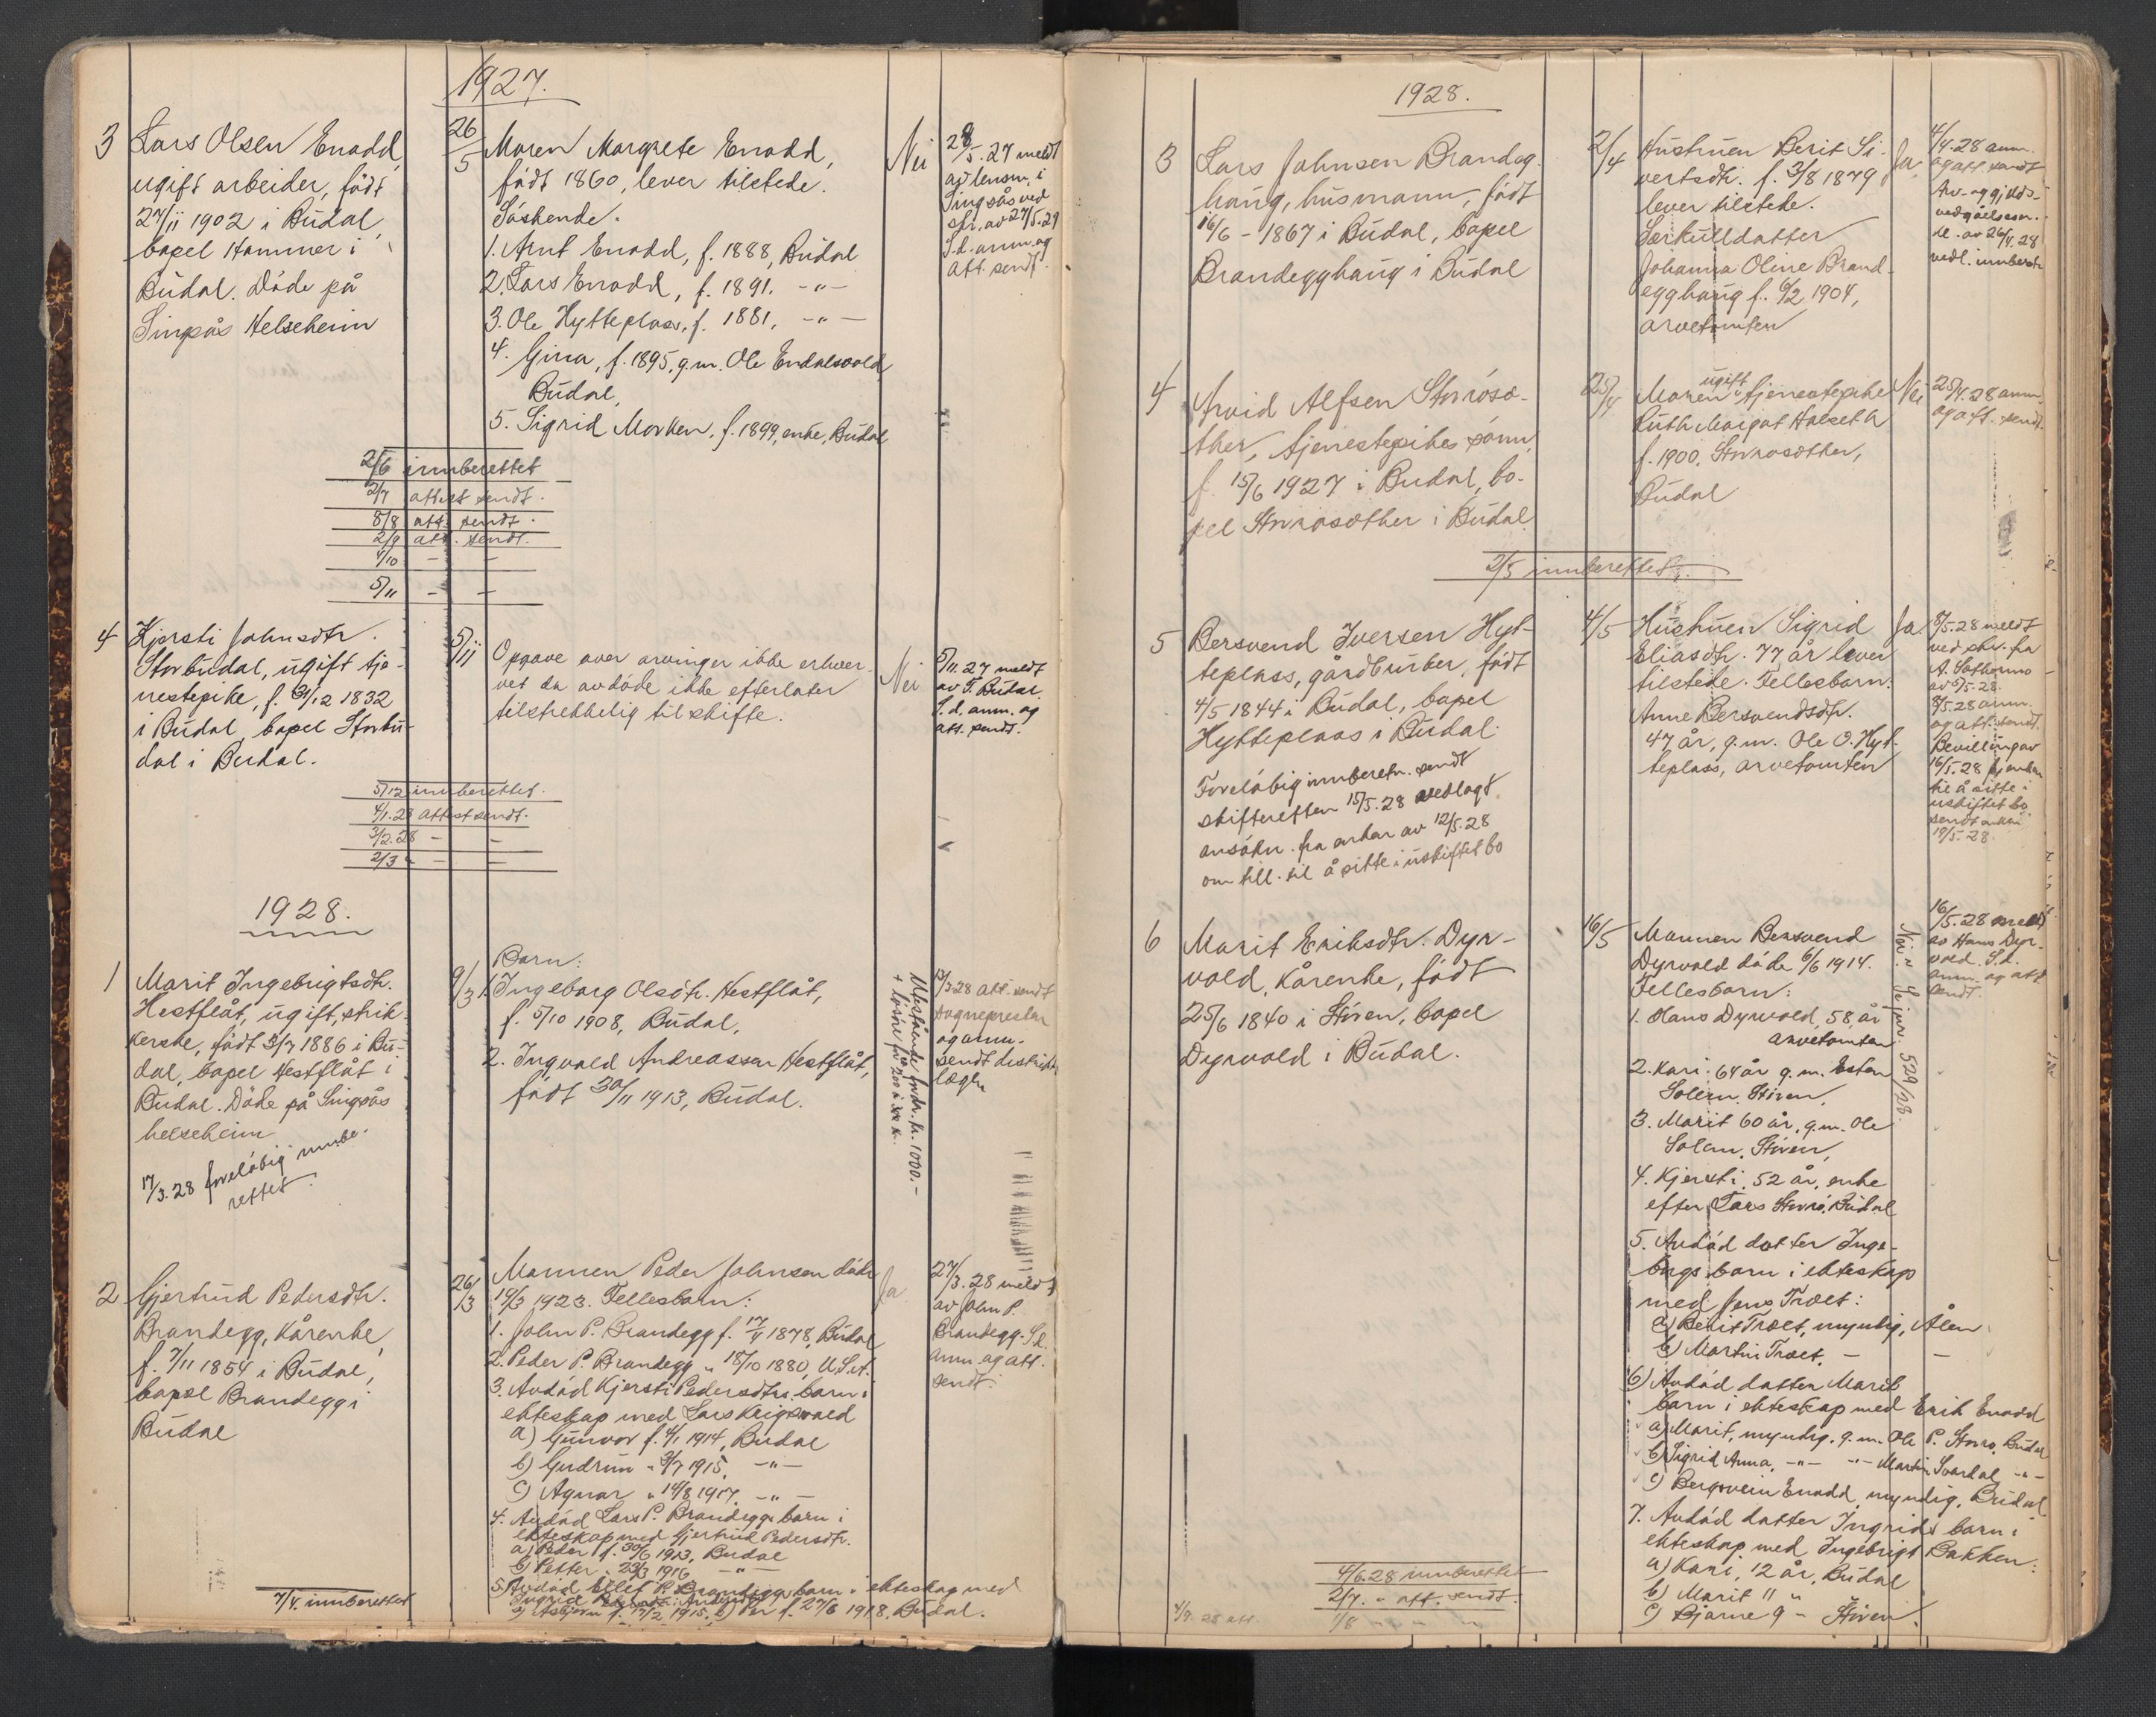 1927.
3
Lars Olsen Enodd,
ugift arbeider, født
27/11 1902 i Budal,
bopel Hammer i
Budal. Døde på
Singsås Helseheim
26/5
Moren Margrete Enodd,
født 1860, lever tilstede.
Søskende.
1. Arnt Enodd, f. 1888, Budal
2. Lars Enodd, f. 1891. -"-
3. Ole Hytteplass, f. 1881, -"-
4. Gina, f. 1895, g.m. Ole Endalsvold
Budal,
5. Sigrid Morken, f. 1899, enke, Budal
Nei
28/5. 27 meldt
av lensm. i
Singsås ved
skr. av 27/5.27
S.d. anm. og
att. sendt.
2/6 innberettet
2/7 attest sendt.
8/8 att. sendt.
2/9 att. sendt.
4/10 - -
5/11 - -
4
Kjersti Johnsdtr.
Storbudal, ugift tje-
nestepike, f. 31/12 1832
i Budal, bopel Storbu-
dal i Budal.
5/11
Opgave over arvinger ikke erhver-
vet da avdøde ikke efterlater
tilstrekkelig til skifte.
Nei
5/11. 27 meldt
av T. Budal.
S.d. anm. og
att. sendt.
5/12 innberettet.
4/1.28 attest sendt.
3/2.28 - -
2/3 " - -
1928.
1
Marit Ingebrigtsdtr.
Hestflåt, ugift, strik-
kerske, født 3/7 1886 i Bu-
dal, bopel Hestflåt i
Budal. Døde på Singsås
helseheim
17/3.28 foreløbig innbe-
rettet.
9/3
Barn:
1. Ingeborg Olsdtr. Hestflåt,
f. 5/10 1908, Budal,
2. Ingvald Andreassen Hestflåt,
født 30/11 1913, Budal.
kr. 1000.-
+ løsøre
/3 28 att. sendt
Sognepresten
og anm.
sendt distrikts-
lægen
2
Gjertrud Pedersdtr.
Brandegg, kårenke,
f. 7/11 1854 i Budal,
bopel Brandegg i
Budal
26/3
Mannen Peder Johnsen døde
19/3 1923. Fellesbarn:
1. John P. Brandegg f. 17/V 1878, Budal
2. Peder P. Brandegg " 18/10 1880, U.S.A.
3. Avdød Kjersti Pedersdtrs barn i
ekteskap med Lars
a) Gunvor f. 4/1 1914, Budal
b) Gudrun " 3/7 1915, -"-
c) Agnar " 14/8 1917, -"-
4. Avdød Lars P. Brandeggs barn i
ekteskap med Gjertrud Pedersdtr.
a) Peder f. 30/6 1913, Budal
b) Petter " 23/3 1916 -"-
5. Avdød Ellef P. Brandeggs barn i ekteskap med
Ingrid
a) Asbjørn f. 17/2 1915, b) Per f. 27/6 1918, Budal.
Ja
27/3. 28 meldt
av John P.
Brandegg. S.d.
anm. og att.
sendt.
7/4. innberettet
1928.
3
Lars Johnsen Brandegg-
haug, husmann, født
16/6 - 1867 i Budal, bopel
Brandegghaug i Budal
2/4
Hustruen Berit Si-
vertsdtr. f. 3/8 1879
lever tilstede.
Særkulldatter
Johanna Oline Brand-
egghaug f. 6/2 1904,
arvetomten
Ja
4/4.28 anm.
og att. sendt
Arv- og gjelds-
vedgåelseser.
av 26/4.28
vedl. innberetn
4
Arvid Alfsen Storrøsæ-
ther, tjenestepikes sønn,
f. 15/6 1927 i Budal, bo-
pel Storrøsæther i Budal
25/4
Moren ugift tjenestepike
Ruth Margot Halseth
f. 1900, Storrøsæther,
Budal
Nei
25/4.28 anm.
og att. sendt.
2/5 innberettet.
5
Bersvend Iversen Hyt-
teplass, gårdbruker, født
4/5 1844 i Budal, bopel
Hytteplass i Budal.
Foreløbig innberetn. sendt
skifteretten 15/5.28 vedlagt
ansøkn. fra enken av 12/5.28
om till. til å sitte i uskiftet bo
4/5
Hustruen Sigrid
Eliasdtr. 77 år lever
tilstede. Fellesbarn:
Anne Bersvendsdtr.
47 år, g.m. Ole O. Hyt-
teplass, arvetomten
Ja
8/5.28 meldt
ved skr. fra
A.
av 5/5-28.
8/5.28 anm.
og att. sendt.
Bevilling av
16/5.28 for enken
til å sitte i
uskiftet bo
sendt enken
19/5-28.
6
Marit Eriksdtr. Dyr-
vold, kårenke, født
25/6 1840 i Støren, bopel
Dyrvold i Budal.
16/5
Mannen Bersvend
Dyrvold døde 6/6 1914.
Fellesbarn:
1. Hans Dyrvold, 58 år
arvetomten
2. Kari 64 år g.m. Esten
Solem, Støren,
3. Marit 60 år, g.m. Ole
Solem, Støren,
4. Kjersti, 52 år, enke
efter Lars Storrø, Budal
5. Avdød datter Inge-
borgs barn i ekteskap
med Jens Troet:
a) Berit Troet, myndig, Ålen
b) Martin Troet, - -
6) Avdød datter Marits
barn i ekteskap med Erik Enodd
a) Marit, myndig, g.m. Ole P. Storrø, Budal
b) Sigrid Anna, -"- -"- Martin Svardal -"-
c) Bergsvein Enodd, myndig, Budal
7. Avdød datter Ingrids barn i
ekteskap med Ingebrigt Bakken:
a) Kari, 12 år, Budal
b) Marit 11 "
c) Bjarne 9 - Støren.
Nei. Se jnr. 529/28.
16/5.28 meldt
av Hans Dyr-
vold. S.d.
anm. og att
sendt.
4/6.28 innberettet
2/7. " att. sendt.
1/8 " " "
4/9. 28 att.